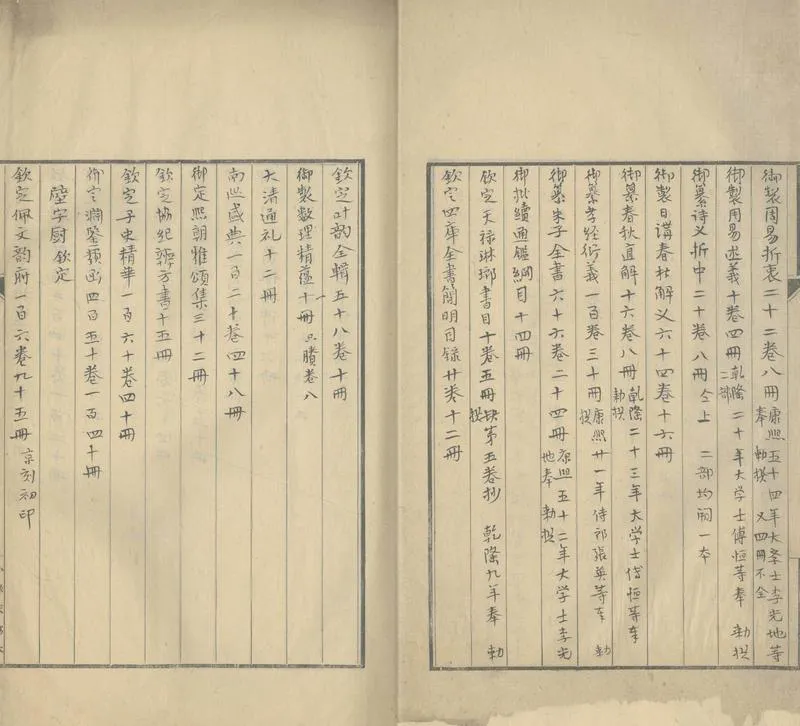 御製周易折衷二十二卷八冊 康熙五十四年大學士李光地等奉 勅撰 又四冊不全
御製周易述義十卷四冊 乾隆二十年大学士傅恒等奉 勅撰 二部
御纂诗义折中二十卷八冊 仝上 二部均阙一本
御製日講春秋解义六十四卷十六冊
御纂春秋直解十六卷八冊 乾隆二十三年大学士傅恒等奉 勅撰
御纂孝经衍義一百卷三十冊 康熙廿一年侍郎張英等奉 勅撰
御纂朱子全書六十六卷二十四冊 康熙五十二年大学士李光地奉 勅撰
御批續通鑑綱目十四冊
欽定天禄琳瑯書目十卷五冊 缺第五卷抄 乾隆九年奉 勅撰
欽定四庫全書簡明目録廿卷十二冊
欽定叶韵全輯五十八卷十冊
御製数理精蕴十冊 只賸卷八
大清通礼十二冊
南巡盛典一百二十卷四十八冊
御定熙朝雅頌集三十二冊
欽定協紀辨方書十五冊
欽定子史精華一百六十卷四十冊
御定淵鑒類函四百五十卷一百四十冊
壁字厨 欽定
欽定佩文韵府一百六卷九十五冊 京刻初印